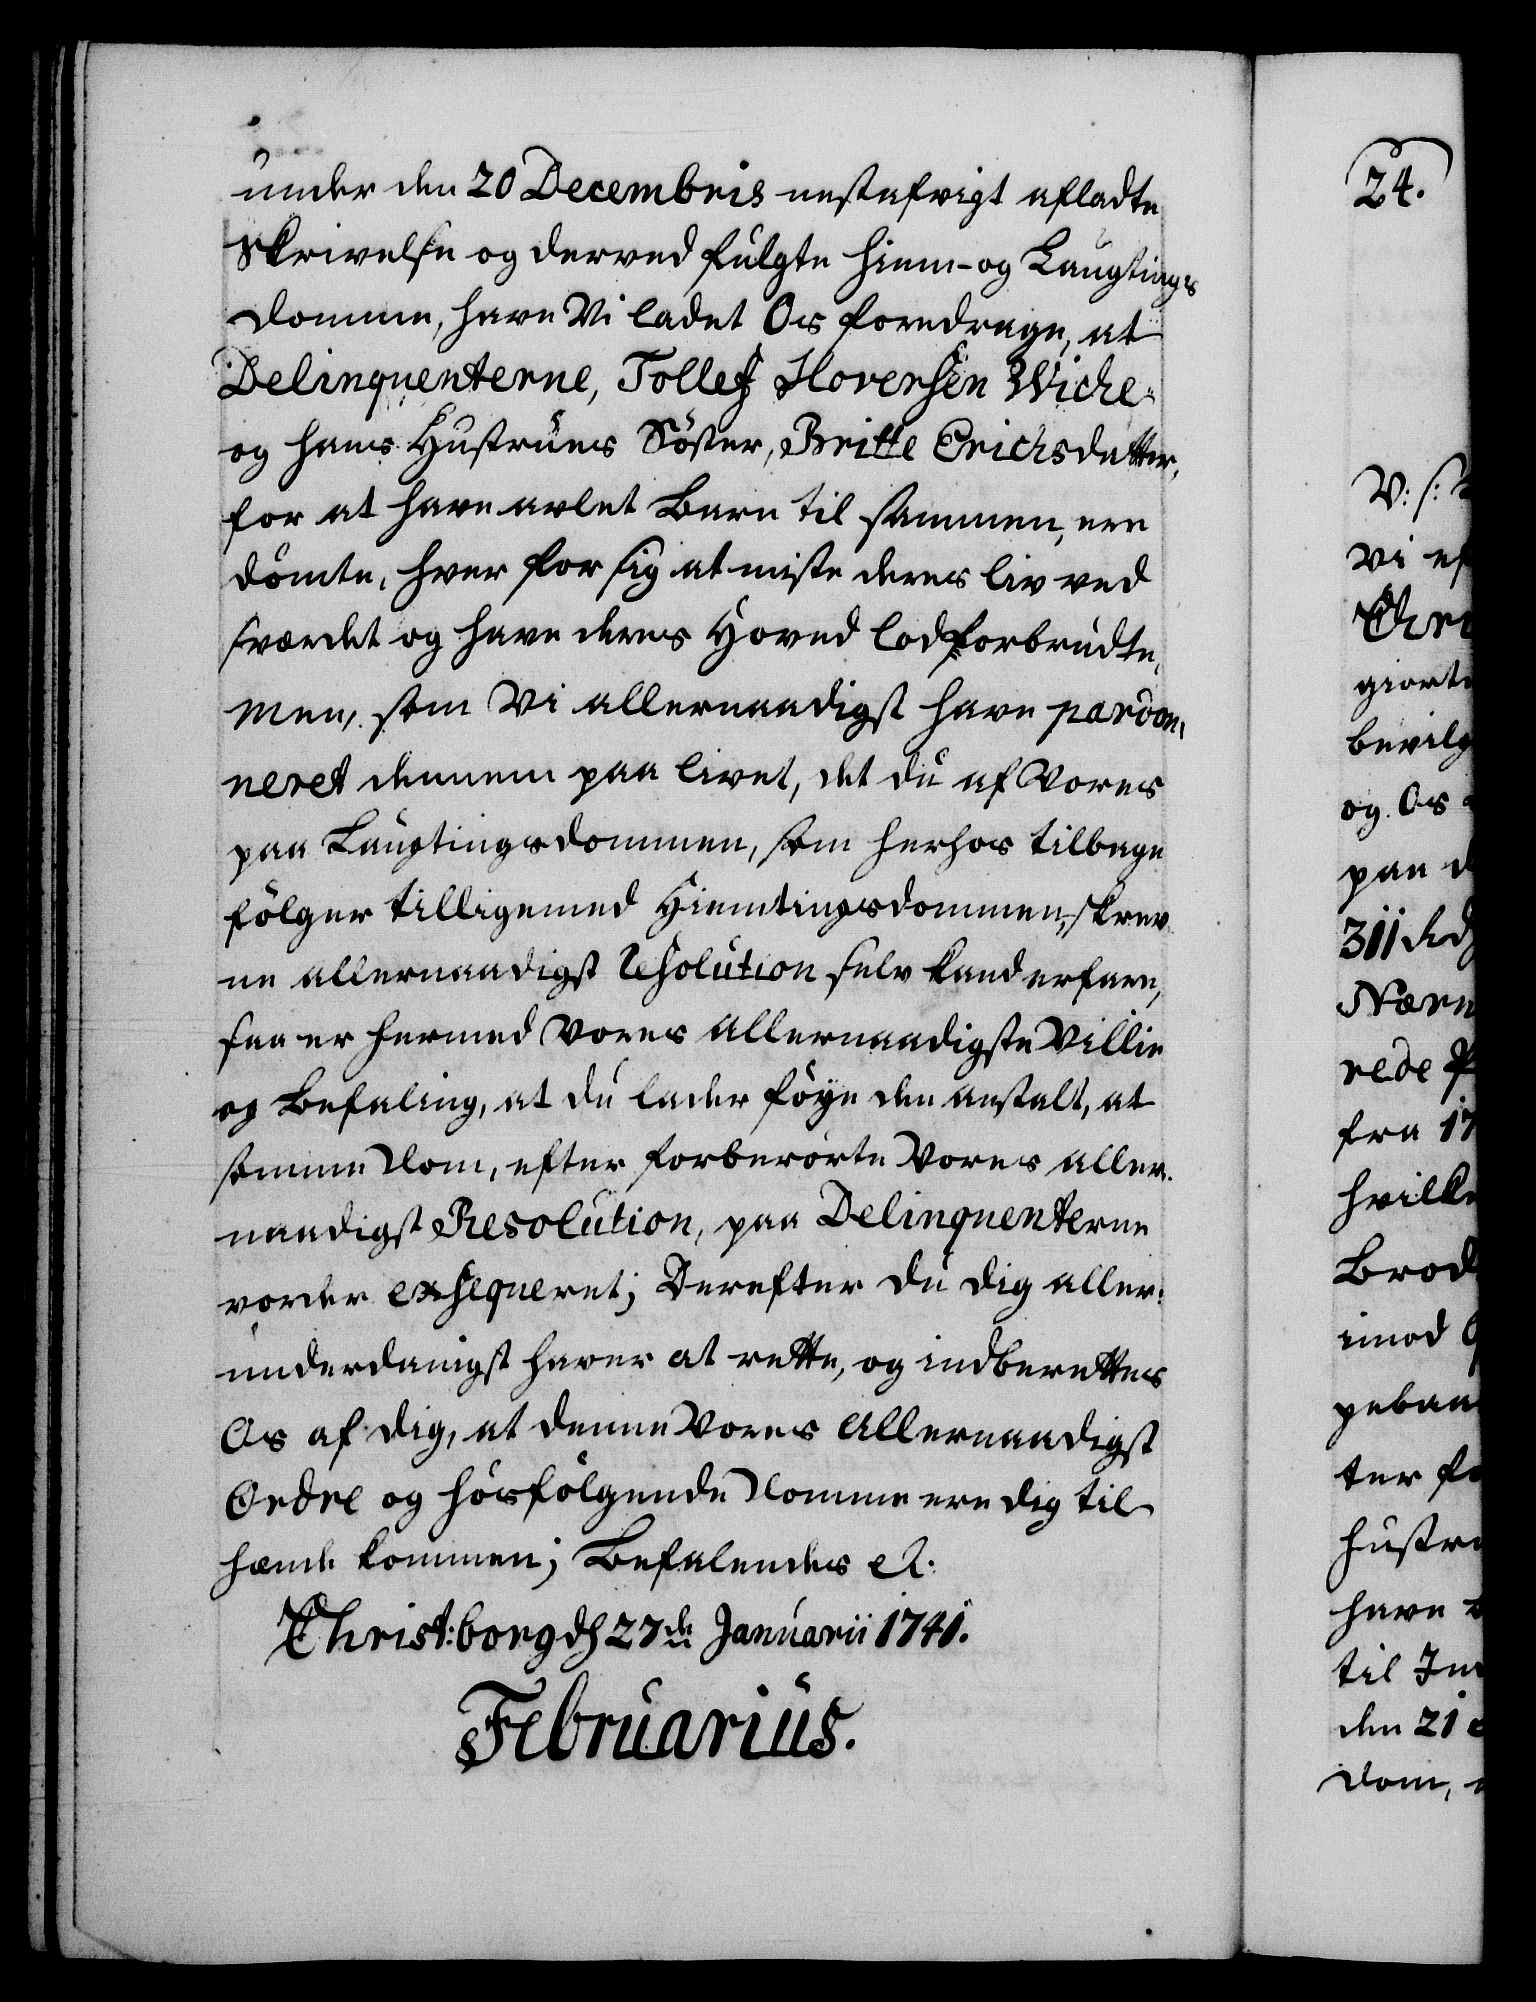 under den 20 Decembris nestafvigt afladte
Skrivelse og derved fulgte Hiem- og Laugtings
Domme, have Vi ladet Os foredrage, at
Delinquenterne, Tollef Hoversen Wiche
og hans Hustrues Söster, Britte Erichsdatter,
for at have avlet Barn til sammen, ere
dömte, hver for sig at miste deres liv ved
Sværdet og have deres Hoved lod forbrudte,
Men, som Vi allernaadigst have pardon-
neret dennem paa livet, det du af Vores
paa Laugtingsdommen, som herhos tilbage
fölger tilligemed Hiemtingsdommen, skrev
ne allernaadigst Resolution selv kand erfare,
saa er hermed Vores allernaadigste Villie
og Befaling, at du lader föye den anstalt, at
samme Dom, efter forberörte Vores aller-
naadigst Resolution, paa Delinquenterne
vorder exsequeret; Derefter du dig aller-
underdanigst haver at rette, og indberettes
Os af dig, at denne Vores Allernaadigst
Ordre og hosfölgende Domme ere dig til
hænde kommen; Befalendes &.
Christ:borg d 27de Januarii 1741.
Februarius.
24.
V: s:
Vi
giort
bevilg
og Os
paa
311
rede
fra 17
hvilke
Brod
imod
ter
hustru
have
til
den 21
Dom,